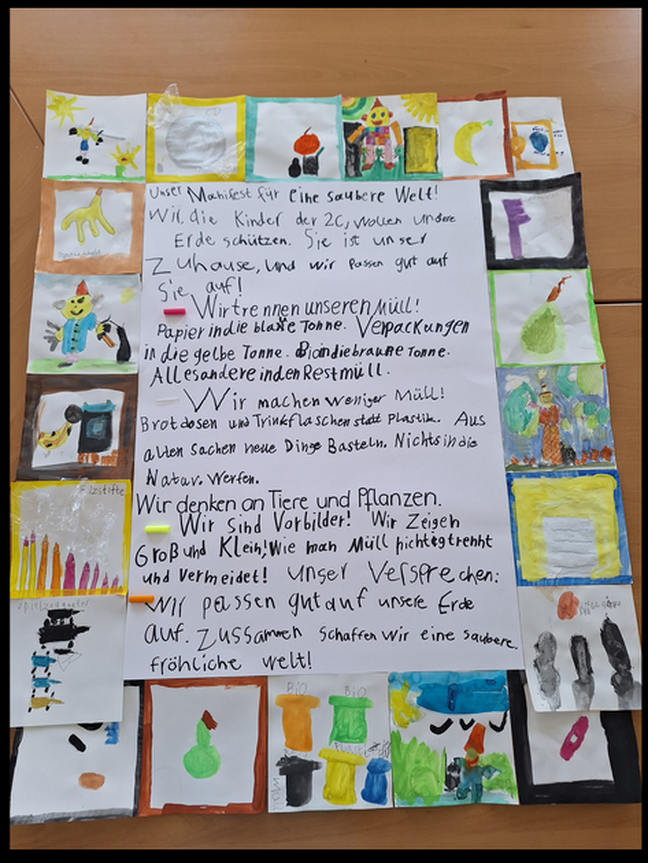 Unser Manifest für eine saubere Welt!
Wir, die Kinder der 2C, wollen unsere
Erde schützen. Sie ist unser
Zuhause, und wir passen gut auf
Sie auf!
Wir trennen unseren Müll!
Papier in die blaue Tonne. Verpackungen
in die gelbe Tonne. Bio in die braune Tonne.
Alles andere in den Restmüll.
Wir machen weniger Müll!
Brotdosen und Trinkflaschen statt Plastik. Aus
alten Sachen neue Dinge Basteln. Nichts in die
Natur. Werfen.
Wir denken an Tiere und Pflanzen.
Wir Sind Vorbilder! Wir Zeigen
Groß und Klein! Wie man Müll richtig trennt
und vermeidet! Unser Versprechen:
Wir passen gut auf unsere Erde
auf. Zussammen schaffen wir eine saubere.
fröhliche welt!
Filzstifte
BIO
BIO